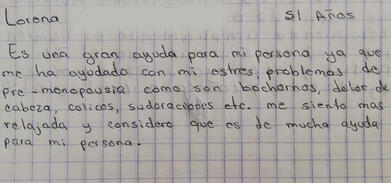 Lorena 51 Años
Es una gran ayuda para mi persona ya que
me ha ayudado con mi estres, problemas de
pre-menopausia como son bochornos, dolor de
cabeza, colicos, sudoraciones etc. me siento mas
relajada y considero que es de mucha ayuda
para mi persona.